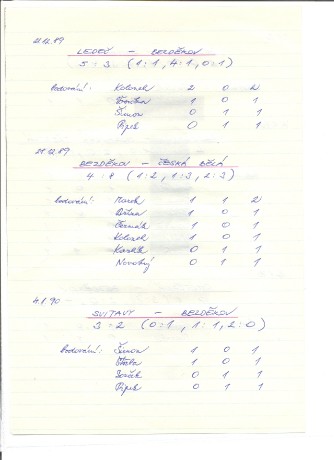 LEDEČ - BEZDĚKOV
5 : 3 (1:1, 4:1, 0:1)
bodování: Kolouch 2 0 2
1 0 1
Šimon 0 1 1
Pipek 0 1 1
BEZDĚKOV - ČESKÁ BĚLÁ
4 : 8 (1:2, 1:3, 2:3)
bodování: Marek 1 1 2
1 0 1
Čermák 1 0 1
Kolouch 1 0 1
0 1 1
Novotný 0 1 1
4.1.90
SVITAVY - BEZDĚKOV
3 : 2 (0:1, 1:1, 2:0)
bodování: Šimon 1 0 1
1 0 1
0 1 1
Pipek 0 1 1